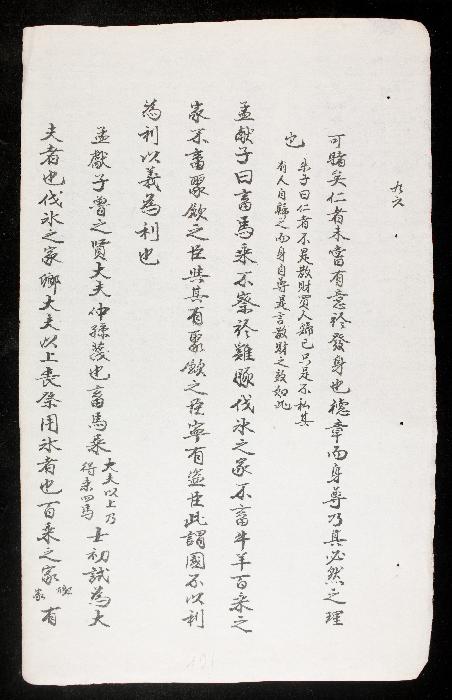 九六
可睹矣仁者未嘗有意於發身也德章而身尊乃其必然之理
也
朱子曰仁者不是散財買人歸己只是不私其
有人自歸之而身自尊是言散財之效如此
孟獻子曰畜馬乘不察於雞豚伐氷之家不畜牛羊百乘之
家不畜聚斂之臣與其有聚斂之臣寧有盜臣此謂國不以利
為利以義為利也
孟獻子魯之賢大夫仲孫蔑也畜馬乘大夫以上乃得乘四馬士初試為大
夫者也伐氷之家卿大夫以上喪祭用氷者也百乘之家有